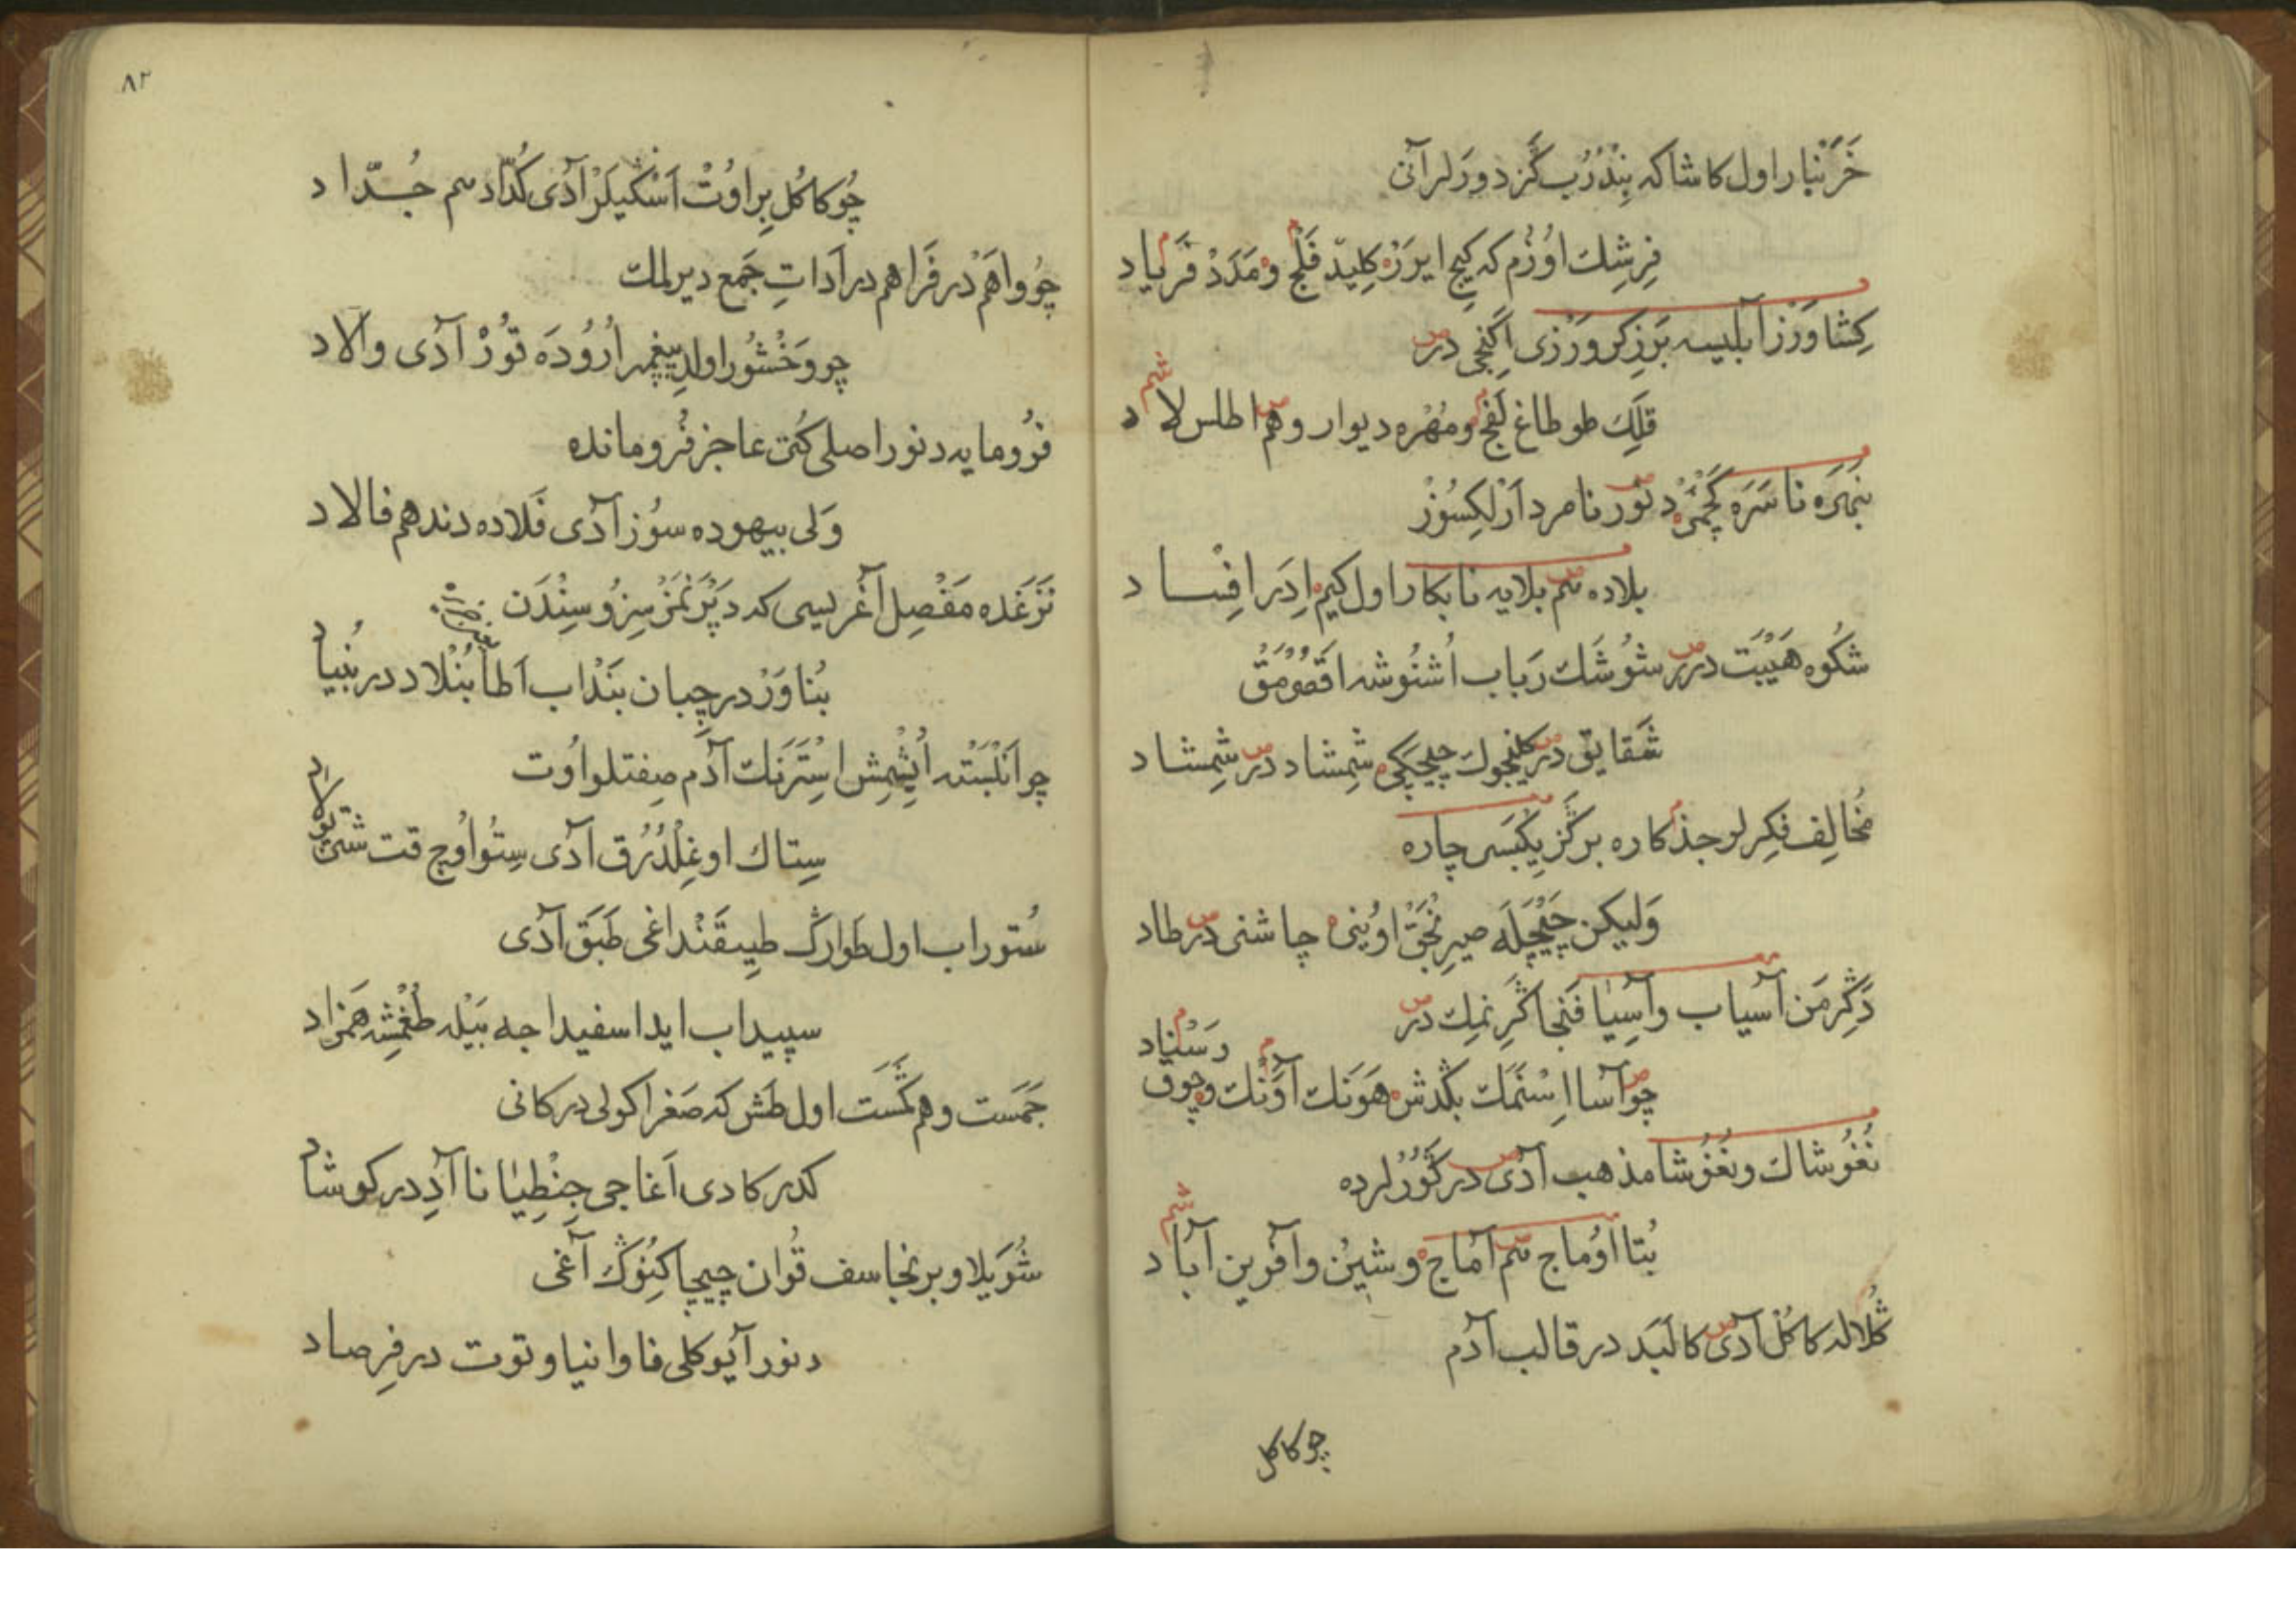 خَرَنْبار اول كاشاكه بِنْدُرُب كَزدورَلر آنى
فِرِشِك اوُزُم كه كيچ ايرَر كِليد فَلْج ومَدَدْ فَرياد
كِشاوَرْز آبليسه بَرزِكر وَرْزى اَكِنْجى در
قَلَك طوطاغ لَفْج ومُهْره ديوار وهم اطلس لاد
نَبَهْرَه ناسَرَه كَچْمَز دنور نامرد اَرْلكِسُوزْ
بلاده هم بلايه نابكار اول كيم اِدَر افساد
شكُوه هَيْبَت درر شوُشَك رَباب اُشنوُشه اقصومق
شَقايق در كليجوك چيچكى شِمشاد در شِمِشاد
مُخالِف فِكِرلو جذكاره بركَز يِكْبَسى چاره
وَليكن چاشنى در طاد
دَكِرمَن آسياب وآسِيا فَنجا كَرِنمك در
چو آسا اسْنَمَك بكدش هَوَنك آوَنْك وچوق رَسْناد
نُغُوشاك ونُغُوشا مذهب آدى در كَورلرده
بُتا اوُماج هم آماج وشيُن وآفَرين آباد
كُلاله كاكُل آدى كالبَد در قالب آدم
چو كاكل
٨٢
چو كاكُل بِراوُتْ اَسْكيلَرْ آدى كُدّاد هم جُدّا د
چو واهَمْ در فَراهم در آداتِ جَمع ديرلمك
چو وَخْشُور اولدى پيغمبر اُرُودَه تُوزْ آدى والاد
فرُومايه دنور اصلى كُتى عاجز فُرومانده
وَلى بيهوده سوُز آدى فَلاده دند هم فالاد
نَزغَده مَفْصِل آغريسى كه دَپْرَنمَز سِزُوسِنْدَن
بُناوَرْ در چِبان بَنْداب آطا بُنْلاد در بُنيا د
چو اَنْلَبَسته اُيِشْمِش اِسْتَرَنك آدم صِفتلو اوُت
سِتاك اوغِلْدُرُق آدى سِتُو اوُچ قت
سُتوراب اول طَوارك طپيقَنْداغى طَبَق آدى
سپيداب ايدا سفيداجه بَيْله طُغْمِشه هَمْزاد
جَمَست وهم كَمَست اول طَش كه صَغراكولى در كانى
كدر كادى اَغاجى جِنْطِيانا آدِدر كوشا د
شُوَيلا وبرنجاسف قُوان چيچاكِنُوك آغى
دنور آيو كلى فاوانيا وتوت در فِرصاد